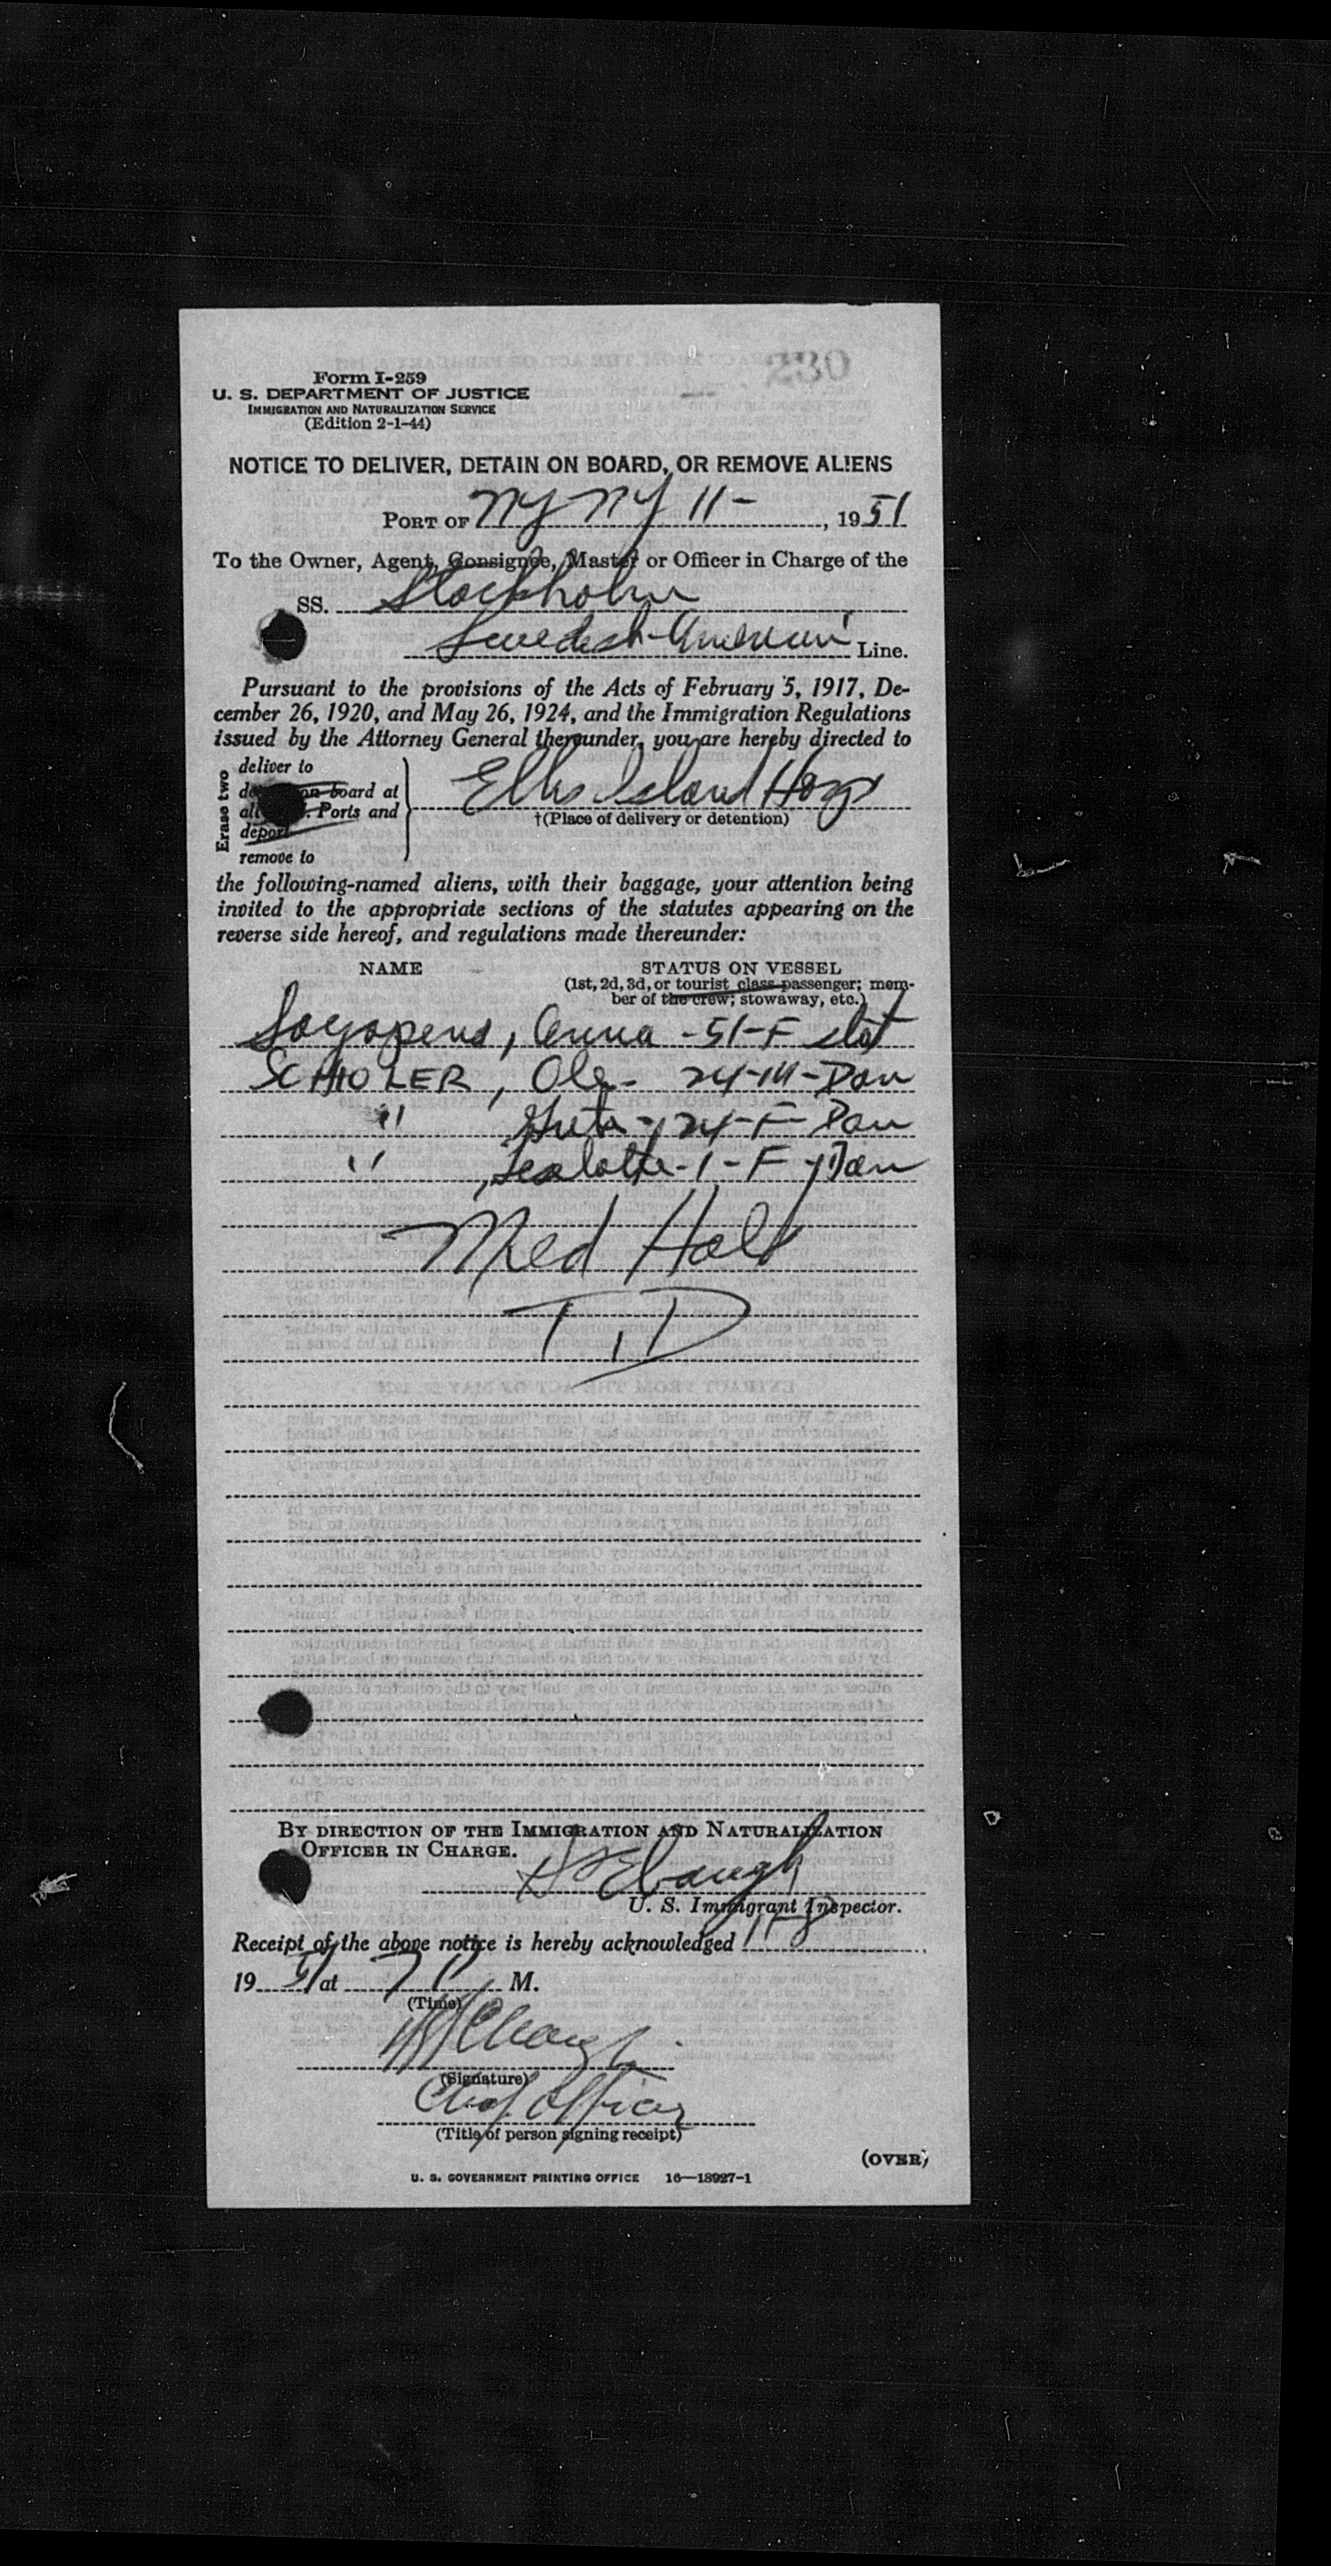 Form I-259
U. S. DEPARTMENT OF JUSTICE
IMMIGRATION AND NATURALIZATION SERVICE
(Edition 2-1-44)
NOTICE TO DELIVER, DETAIN ON BOARD, OR REMOVE ALIENS
PORT OF NY NY 11- , 1951
To the Owner, Agent, Consignee, Master or Officer in Charge of the
SS. Stockholm
Swedish-American Line.
Pursuant to the provisions of the Acts of February 5, 1917, De-
cember 26, 1920, and May 26, 1924, and the Immigration Regulations
issued by the Attorney General thereunder, you are hereby directed to
Erase two
deliver to
on board at
Ports and
deport
remove to
Ellis Island Hosp
†(Place of delivery or detention)
the following-named aliens, with their baggage, your attention being
invited to the appropriate sections of the statutes appearing on the
reverse side hereof, and regulations made thereunder:
NAME STATUS ON VESSEL
(1st, 2d, 3d, or tourist class passenger; mem-
ber of the crew; stowaway, etc.)
Anna -51-F
SCHIOLER, Ole - 24-M-Dan
" - 24-F- Dan
" -1-F-Dan
Med Hold
T.D
BY DIRECTION OF THE IMMIGRATION AND NATURALIZATION
OFFICER IN CHARGE.
U. S. Immigrant Inspector.
Receipt of the above notice is hereby acknowledged 11-8
1951 at M.
(Time)
(Signature)
Chief Officer
(Title of person signing receipt)
(OVER)
U. S. GOVERNMENT PRINTING OFFICE 16—18927-1